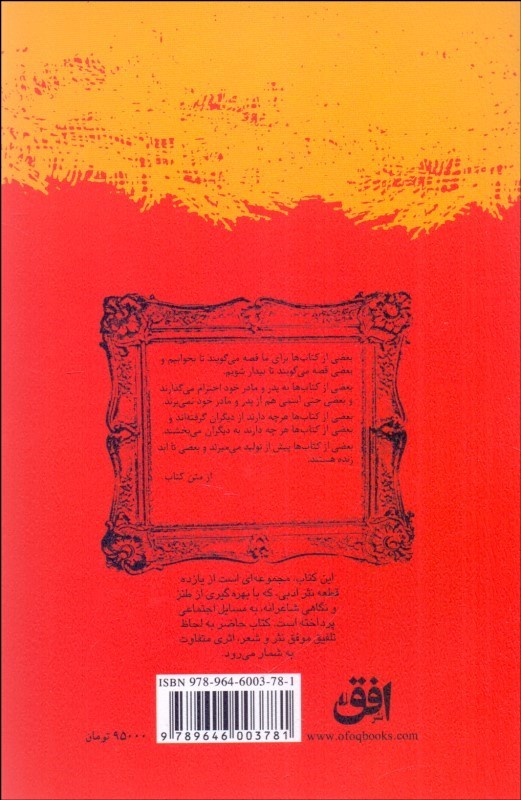 بعضی از کتاب‌ها برای ما قصه می‌گویند تا بخوابیم و
بعضی قصه می‌گویند تا بیدار شویم.
بعضی از کتاب‌ها به پدر و مادر خود احترام می‌گذارند
و بعضی حتی اسمی هم از پدر و مادر خود نمی‌برند.
بعضی از کتاب‌ها هرچه دارند از دیگران گرفته‌اند و
بعضی از کتاب‌ها هرچه دارند به دیگران می‌بخشند.
بعضی از کتاب‌ها پیش از تولید می‌میرند و بعضی تا ابد
زنده هستند.
از متن کتاب
این کتاب، مجموعه‌ای است از یازده
قطعه نثر ادبی، که با بهره گیری از طنز
و نگاهی شاعرانه، به مسایل اجتماعی
پرداخته است. کتاب حاضر به لحاظ
تلفیق موفق نثر و شعر، اثری متفاوت
به شمار می‌رود.
ISBN 978-964-6003-78-1
9 789646 003781
۹۵۰۰۰ تومان
نشر افق
www.ofoqbooks.com